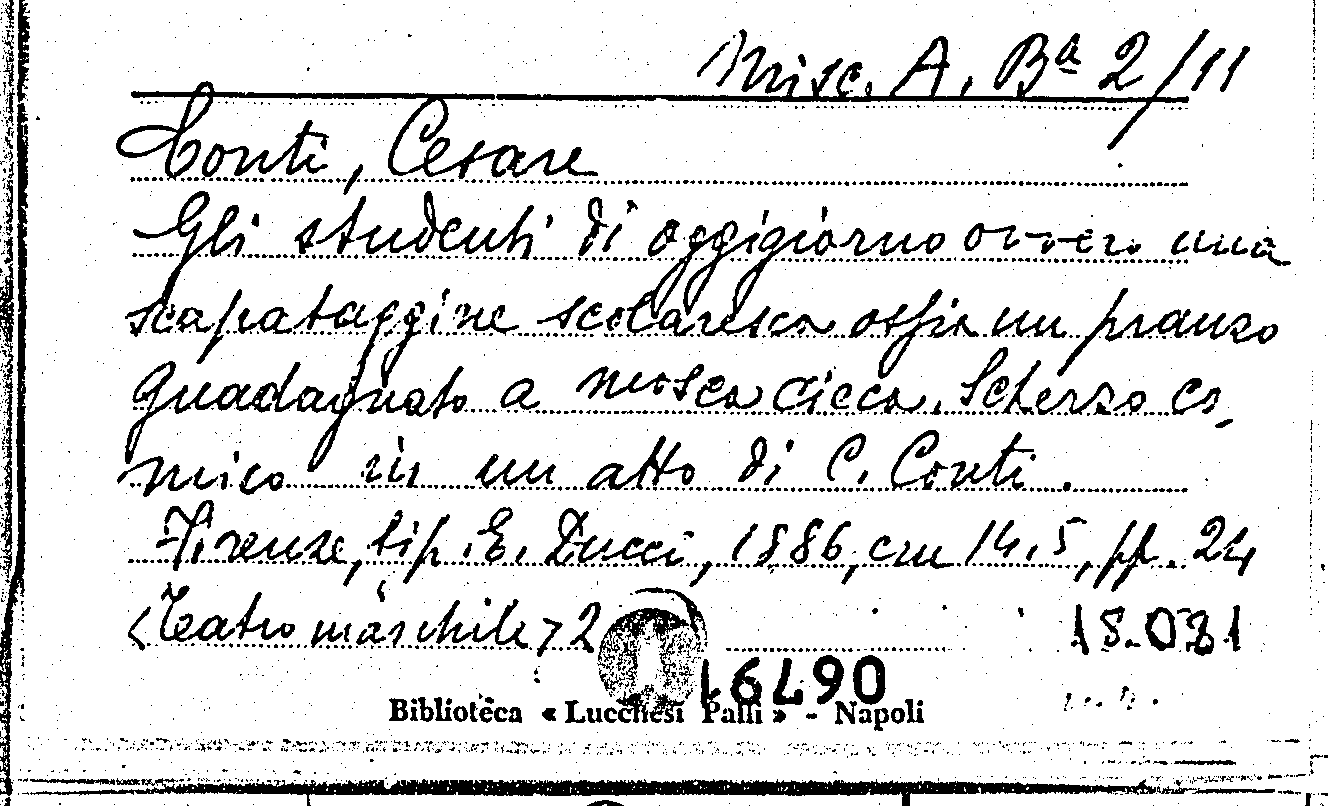 Misc. A. Bª 2/11
Conti, Cesare
Gli studenti di oggigiorno ovvero una
scapataggine scolaresca ossia un pranzo
guadagnato a mosca cieca. Scherzo co-
mico in un atto di C. Conti.
Firenze, tip. E. Ducci, 1886, cm 14.5, pp. 24
<Teatro maschile> 2
18.031
16490
Biblioteca « Lucchesi Palli » - Napoli